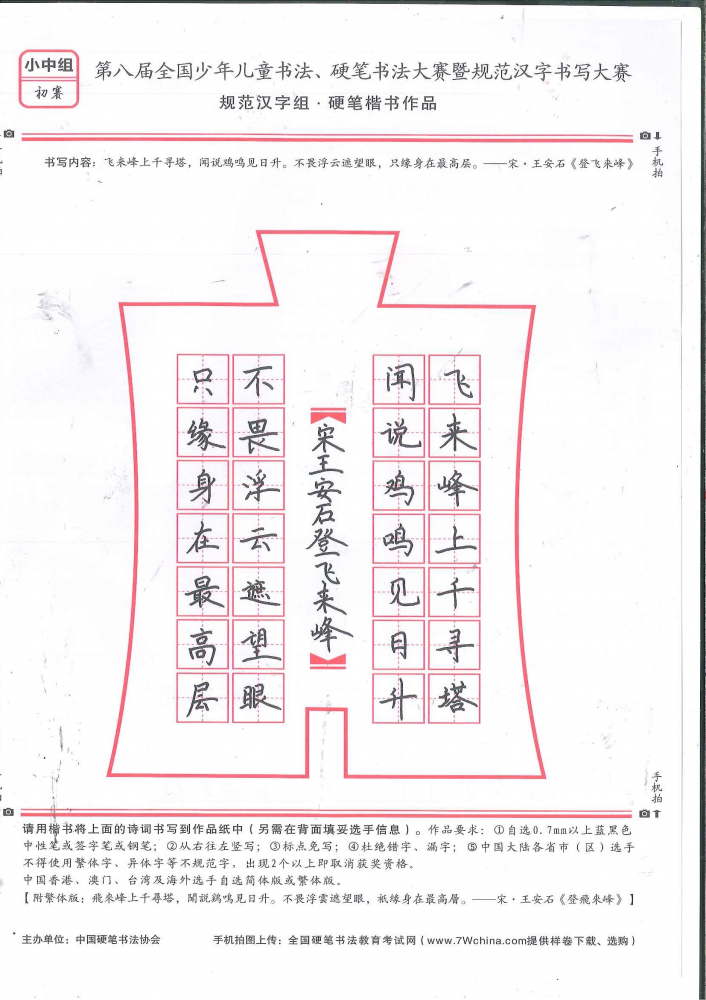 小中组
初赛
第八届全国少年儿童书法、硬笔书法大赛暨规范汉字书写大赛
规范汉字组·硬笔楷书作品
手机拍
书写内容：飞来峰上千寻塔，闻说鸡鸣见日升。不畏浮云遮望眼，只缘身在最高层。——宋·王安石《登飞来峰》
飞来峰上千寻塔
闻说鸡鸣见日升
宋王安石登飞来峰
不畏浮云遮望眼
只缘身在最高层
手机拍
请用楷书将上面的诗词书写到作品纸中（另需在背面填妥选手信息）。作品要求：①自选0.7mm以上蓝黑色
中性笔或签字笔或钢笔；②从右往左竖写；③标点免写；④杜绝错字、漏字；⑤中国大陆各省市（区）选手
不得使用繁体字、异体字等不规范字，出现2个以上即取消获奖资格。
中国香港、澳门、台湾及海外选手自选简体版或繁体版。
【附繁体版：飛來峰上千尋塔，聞説鷄鳴見日升。不畏浮雲遮望眼，衹緣身在最高層。——宋·王安石《登飛來峰》】
主办单位：中国硬笔书法协会
手机拍图上传：全国硬笔书法教育考试网（www.7Wchina.com提供样卷下载、选购）